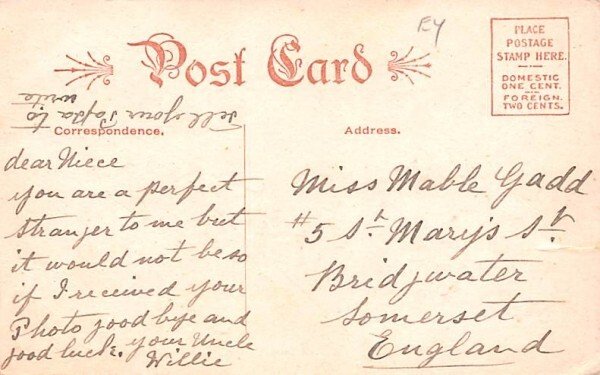 EY
Post Card
PLACE
POSTAGE
STAMP HERE.
DOMESTIC
ONE CENT.
FOREIGN.
TWO CENTS.
Correspondence.
Address.
dear Niece
you are a perfect
stranger to me but
it would not be so
if I received your
Photo good bye and
good luck. your Uncle
Willie
Tell your Papa to
write
Miss Mable Gadd
#5 St. Mary's St
Bridjwater
Somerset
England